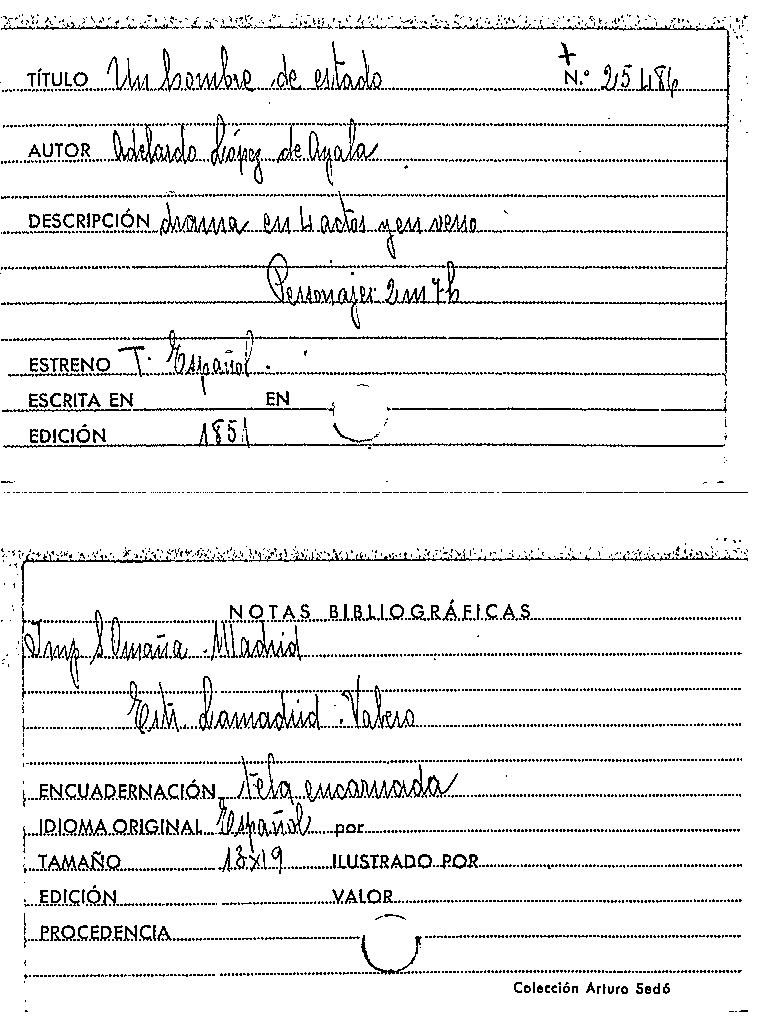 +
TÍTULO Un hombre de estado N.º 25486
AUTOR Adelardo López de Ayala
DESCRIPCIÓN drama en 4 actos y en verso
Personajes 2m 7h
ESTRENO T. Español.
ESCRITA EN EN
EDICIÓN 1851
NOTAS BIBLIOGRÁFICAS
Imp S Omaña. Madrid
Estr. Lamadrid. Valero
ENCUADERNACIÓN tela encarnada
IDIOMA ORIGINAL Español por
TAMAÑO 13x19 ILUSTRADO POR
EDICIÓN VALOR
PROCEDENCIA
Colección Arturo Sedó